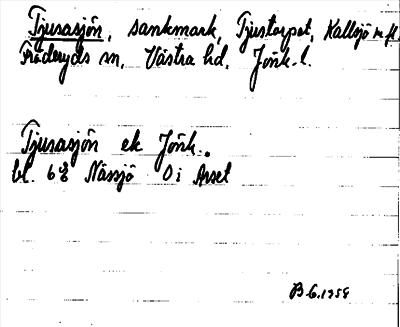 Tjurasjön, sankmark, Tjustorpet, Kallsjö m.fl.
Fröderyds sn, Västra hd, Jönk. l.
Tjurasjön ek Jönk.
bl. 62 Nässjö O i Arset
B G. 1958